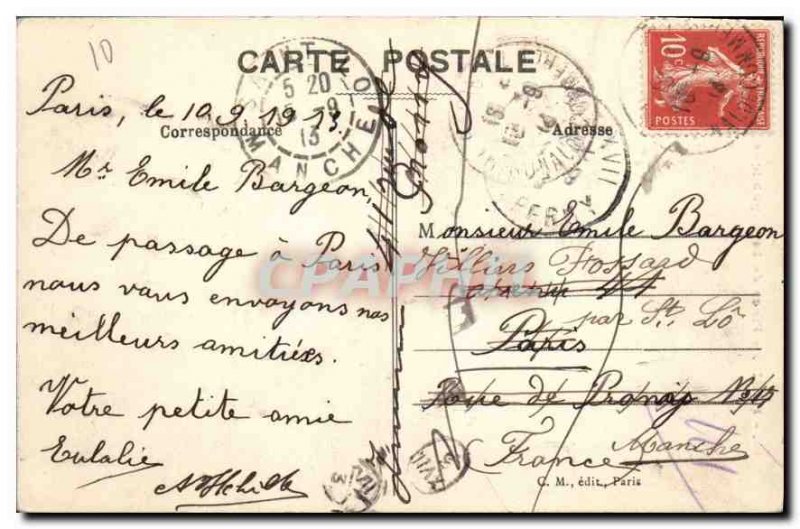 10
CARTE POSTALE
Correspondance
Adresse
Paris, le 10 9 1913.
Mr Emile Bargeon,
De passage à Paris
nous vous envoyons nos
meilleurs amitiées.
Votre petite amie
Eulalie
5 20
5 - 9
13
MANCHE
10c
POSTES
Monsieur Emile Bargeon
Villiers Fossard
par St Lô
Paris
Rue de
Manche
France
C. M., édit., Paris
CPAPHIL